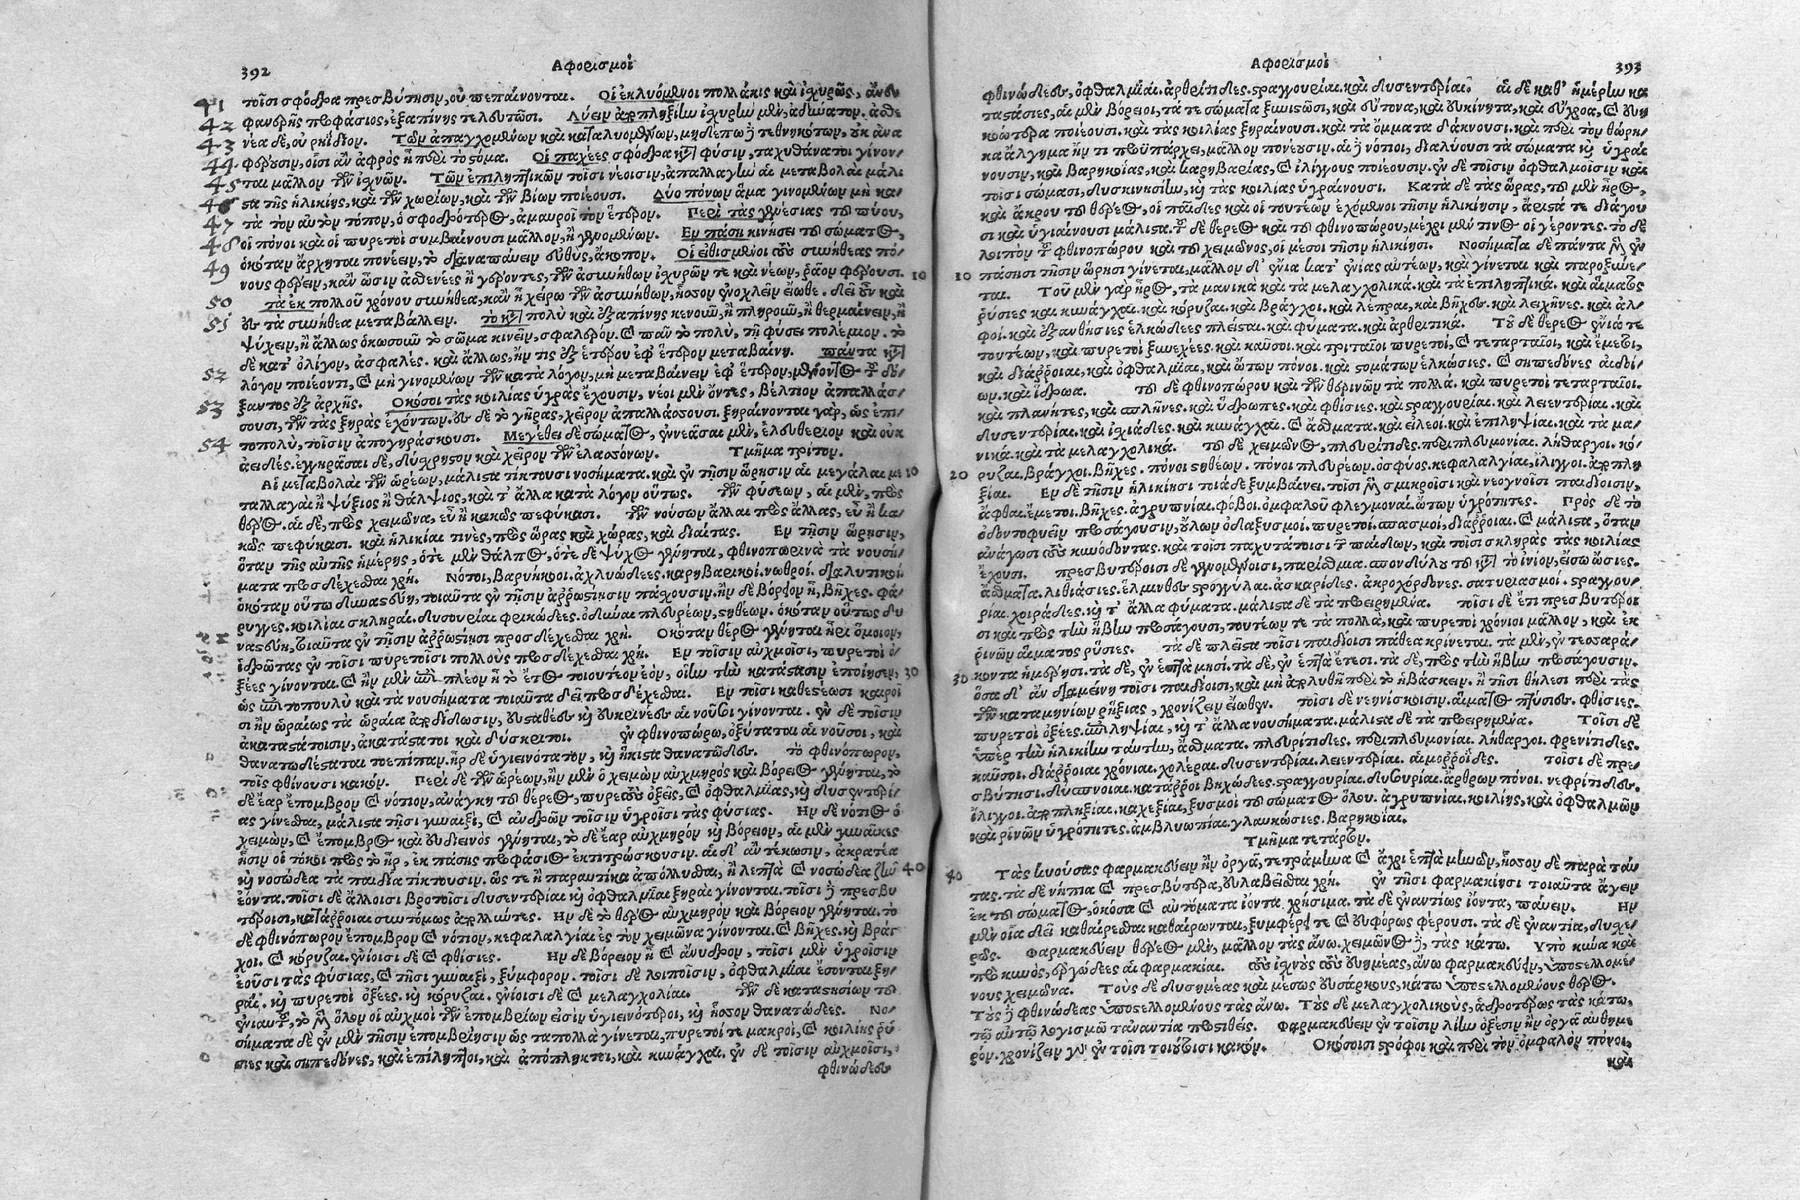 392
Αφορισμοὶ
41 τοῖσι σφόδρα πρεσβύτησιν, οὐ πεπαίνονται. Οἱ ἐκλυόμενοι πολλάκις καὶ ἰχυρῶς, ἄνευ
42 φανερῆς προφάσιος, ἐξαπίνης τελευτῶσι. Λύειν ἀποπληξίην ἰχυρὴν μὲν, ἀδύνατον. ἀσθε
43 νέα δὲ, οὐ ρηΐδιον. Τῶν ἀπαγχομένων καὶ καταλυομένων, μηδέπω δὲ τεθνηκότων, οὐκ ἀνα
44 φέρουσιν, οἷσι ἂν ἀφρὸς ᾖ περὶ τὸ στόμα. Οἱ παχέες σφόδρα κατὰ φύσιν, ταχυθάνατοι γίνον/
45 ται μᾶλλον τῶν ἰχνῶν. Τῶν ἐπιληπτικῶν τοῖσι νέοισιν, ἀπαλλαγὴν αἱ μεταβολαὶ μάλι
46 στα τῆς ἡλικίης, καὶ τῶν χωρίων, καὶ τῶν βίων ποιέουσι. Δύο πόνων ἅμα γινομένων μὴ κα/
47 τὰ τὸν αὐτὸν τόπον, ὁ σφοδρότερος, ἀμαυροῖ τὸν ἕτερον. Περὶ τὰς γενέσιας τοῦ πύου,
48 οἱ πόνοι καὶ οἱ πυρετοὶ συμβαίνουσι μᾶλλον, ἢ γενομένων. Εν πάσῃ κινήσει τοῦ σώματος,
49 ὁκόταν ἄρχηται πονέειν, τὸ διαναπαύειν εὐθὺς, ἄκοπον. Οἱ εἰθισμένοι τοὺς συνήθεας πό/
νους φέρειν, κἂν ὦσιν ἀσθενέες ἢ γέροντες, τῶν ἀσυνήθων ἰχυρῶν τε καὶ νέων, ῥᾷον φέρουσι. 10
50 τὰ ἐκ πολλοῦ χρόνου συνήθεα, κἂν ᾖ χείρω τῶν ἀσυνήθων, ἧσσον ἐνοχλεῖν εἴωθε. δεῖ οὖν καὶ
51 ἐς τὰ συνήθεα μεταβάλλειν. τὸ κατὰ πολὺ καὶ ἐξαπίνης κενοῦν, ἢ πληροῦν, ἢ θερμαίνειν, ἢ
ψύχειν, ἢ ἄλλως ὁκωσοῦν τὸ σῶμα κινεῖν, σφαλερόν. καὶ πᾶν τὸ πολὺ, τῇ φύσει πολέμιον. τὸ
δὲ κατ' ὀλίγον, ἀσφαλές. καὶ ἄλλως, ἤν τις ἐξ ἑτέρου ἐφ' ἕτερον μεταβαίνῃ. πάντα κατὰ
52 λόγον ποιέοντι, καὶ μὴ γινομένων τῶν κατὰ λόγον, μὴ μεταβαίνειν ἐφ' ἕτερον, μένοντος τοῦ δό/
53 ξαντος ἐξ ἀρχῆς. Οκόσοι τὰς κοιλίας ὑγρὰς ἔχουσιν, νέοι μὲν ὄντες, βέλτιον ἀπαλλάσ/
σουσι, τῶν τὰς ξηρὰς ἐχόντων. ἐς δὲ τὸ γῆρας, χεῖρον ἀπαλλάσσουσι. ξηραίνονται γὰρ, ὡς ἐπι/
54 τοπολὺ, τοῖσιν ἀπογηράσκουσι. Μεγέθει δὲ σώματος, ἐννεᾶσαι μὲν, ἐλευθέριον καὶ οὐκ
ἀειδές. ἐγγηρᾶσαι δὲ, δύχρηστον καὶ χεῖρον τῶν ἐλασσόνων. Τμῆμα τρίτον.
Αἱ μεταβολαὶ τῶν ὡρέων, μάλιστα τίκτουσι νοσήματα. καὶ ἐν τῇσιν ὥρῃσιν αἱ μεγάλαι με
ταλλαγαὶ ἢ ψύξιος ἢ θάλψιος, καὶ τ' ἄλλα κατὰ λόγον οὕτως. τῶν φύσεων, αἱ μὲν, πρὸς
θέρος. αἱ δὲ, πρὸς χειμῶνα, εὖ ἢ κακῶς πεφύκασι. τῶν νούσων ἄλλαι πρὸς ἄλλας, εὖ ἢ κα/
κῶς πεφύκασι. καὶ ἡλικίαι τινὲς, πρὸς ὥρας καὶ χώρας, καὶ διαίτας. Εν τῇσιν ὥρῃσιν,
ὅταν τῆς αὐτῆς ἡμέρης, ὁτὲ μὲν θάλπος, ὁτὲ δὲ ψύχος γένηται, φθινοπωρινὰ τὰ νουσή/
ματα προσδέχεσθαι χρή. Νότοι, βαρυήκοοι. ἀχλυώδεες. καρηβαρικοί. νωθροί. διαλυτικοί.
ὁκόταν οὗτοι δυναστεύῃ, τοιαῦτα ἐν τῇσιν ἀῤῥωστίῃσιν πάχουσιν. ἢν δὲ βόρειον ᾖ, βῆχες. φά/
ρυγγες. κοιλίαι σκληραί. δυσουρίαι φρικώδεες. ὀδύναι πλευρέων, στηθέων. ὁκόταν οὕτως δυ
ναστεύῃ, τοιαῦτα ἐν τῇσιν ἀῤῥωστίῃσι προσδέχεσθαι χρή. Οκόταν θέρος γένηται ἦρι ὅμοιον,
ἱδρῶτας ἐν τοῖσι πυρετοῖσι πολλοὺς προσδέχεσθαι χρή. Εν τοῖσιν αὐχμοῖσι, πυρετοὶ ὀ/
ξέες γίνονται. καὶ ἢν μὲν ἐπὶ πλέον ᾖ τὸ ἔτος τοιουτεον ἐὸν, οἵην τὴν κατάστασιν ἐποίησεν, 30
ὡς ἐπὶ τοπουλὺ καὶ τὰ νουσήματα τοιαῦτα δεῖ προσδέχεσθαι. Εν τοῖσι καθεστέωσι καιροῖ
σι ἢν ὡραίως τὰ ὡραῖα ἀποδίδωσιν, εὐσταθέες καὶ εὐκρινέες αἱ νοῦσοι γίνονται. ἐν δὲ τοῖσιν
ἀκαταστάτοισιν, ἀκατάστατοι καὶ δύσκριτοι. ἐν φθινοπώρῳ, ὀξύταται αἱ νοῦσοι, καὶ
θανατωδέσταται τοεπίπαν. ἦρ δὲ ὑγιεινότατον, καὶ ἥκιστα θανατῶδες. τὸ φθινόπωρον,
τοῖς φθίνουσι κακόν. Περὶ δὲ τῶν ὡρέων, ἢν μὲν ὁ χειμὼν αὐχμηρὸς καὶ βόρειος γένηται, τὸ
δὲ ἔαρ ἔπομβρον καὶ νότιον, ἀνάγκη τοῦ θέρεος, πυρετοὺς ὀξεῖς, καὶ ὀφθαλμίας, καὶ δυσεντερί/
ας γίνεσθαι, μάλιστα τῇσι γυναιξὶ, καὶ ἀνδρῶν τοῖσιν ὑγροῖσι τὰς φύσιας. Ην δὲ νότιος ὁ
χειμὼν, καὶ ἔπομβρος καὶ εὐδιεινὸς γένηται, τὸ δὲ ἔαρ αὐχμηρὸν καὶ βόρειον, αἱ μὲν γυναῖκες
ᾗσιν οἱ τόκοι πρὸς τὸ ἦρ, ἐκ πάσης προφάσιος ἐκτιτρώσκουσιν. αἱ δ' ἂν τέκωσιν, ἀκρατέα
καὶ νοσώδεα τὰ παιδία τίκτουσιν. ὥς τε ἢ παραυτίκα ἀπόλλυσθαι, ἢ λεπτὰ καὶ νοσώδεα ζῆν 40
ἐόντα. τοῖσι δὲ ἄλλοισι βροτοῖσι δυσεντερίαι καὶ ὀφθαλμίαι ξηραὶ γίνονται. τοῖσι δὲ πρεσβυ
τέροισι, κατάῤῥοοι συντόμως ἀπολλύντες. Ην δὲ τὸ θέρος αὐχμηρὸν καὶ βόρειον γένηται. τὸ
δὲ φθινόπωρον ἔπομβρον καὶ νότιον, κεφαλαλγίαι ἐς τὸν χειμῶνα γίνονται. καὶ βῆχες. καὶ βράγ
χοι. καὶ κόρυζαι. ἐνίοισι δὲ καὶ φθίσιες. Ην δὲ βόρειον ᾖ καὶ ἄνυδρον, τοῖσι μὲν ὑγροῖσιν
ἐοῦσι τὰς φύσιας, καὶ τῇσι γυναιξὶ, ξύμφορον. τοῖσι δὲ λοιποῖσιν, ὀφθαλμίαι ἔσονται ξη/
ραί. καὶ πυρετοὶ ὀξέες. καὶ κόρυζαι. ἐνίοισι δὲ καὶ μελαγχολίαι. τῶν δὲ καταστησίων τοῦ
ἐνιαυτοῦ, τὸ μὲν ὅλον οἱ αὐχμοὶ τῶν ἐπομβρίων εἰσὶν ὑγιεινότεροι, καὶ ἧσσον θανατώδεες. Νο/
σήματα δὲ ἐν μὲν τῇσιν ἐπομβρίῃσιν ὡς ταπολλὰ γίνεται, πυρετοί τε μακροὶ, καὶ κοιλίης ῥύ
σιες καὶ σηπεδόνες, καὶ ἐπίληπτοι, καὶ ἀπόπληκτοι, καὶ κυνάγχαι. ἐν δὲ τοῖσιν αὐχμοῖσι,
φθινώδεες
Αφορισμοὶ
393
φθινώδεες, ὀφθαλμίαι. ἀρθρίτιδες. στραγγουρίαι. καὶ δυσεντερίαι. αἱ δὲ καθ' ἡμέρην κα
ταστάσιες, αἱ μὲν βόρειοι, τά τε σώματα ξυνιστῶσι, καὶ εὔτονα, καὶ εὐκίνητα, καὶ εὔχροα, καὶ εὐη
κοώτερα ποιέουσι. καὶ τὰς κοιλίας ξηραίνουσι. καὶ τὰ ὄμματα δάκνουσι. καὶ περὶ τὸν θώρη/
κα ἄλγημα ἤν τι προϋπάρχει, μᾶλλον πονέουσιν. αἱ δὲ νότιοι, διαλύουσι τὰ σώματα καὶ ὑγραί
νουσιν, καὶ βαρηκοΐας, καὶ καρηβαρίας, καὶ ἰλίγγους ποιέουσιν. ἐν δὲ τοῖσιν ὀφθαλμοῖσιν καὶ
τοῖσι σώμασι, δυσκινησίην, καὶ τὰς κοιλίας ὑγραίνουσι. Κατὰ δὲ τὰς ὥρας, τοῦ μὲν ἦρος,
καὶ ἄκρου τοῦ θέρεος, οἱ παῖδες καὶ οἱ τουτέων ἐχόμενοι τῇσιν ἡλικίῃσιν, ἄριστά τε διάγου
σι καὶ ὑγιαίνουσι μάλιστα. τοῦ δὲ θέρεος καὶ τοῦ φθινοπώρου, μέχρι μέν τινος οἱ γέροντες. τὸ δὲ
λοιπὸν τοῦ φθινοπώρου καὶ τοῦ χειμῶνος, οἱ μέσοι τῇσιν ἡλικίῃσι. Νοσήματα δὲ πάντα μὲν ἐν
10 πάσῃσι τῇσιν ὥρῃσι γίνεται, μᾶλλον δ' ἔνια κατ' ἐνίας αὐτέων, καὶ γίνεται καὶ παροξύνε/
ται. Τοῦ μὲν γὰρ ἦρος, τὰ μανικὰ καὶ τὰ μελαγχολικὰ. καὶ τὰ ἐπιληπτικά. καὶ αἵματος
ῥύσιες καὶ κυνάγχαι. καὶ κόρυζαι. καὶ βράγχοι. καὶ λέπραι, καὶ βῆχες. καὶ λειχῆνες. καὶ ἀλ/
φοί. καὶ ἐξανθήσιες ἑλκώδεες πλεῖσται. καὶ φύματα. καὶ ἀρθριτικά. Τοῦ δὲ θέρεος ἔνιά τε
τουτέων, καὶ πυρετοὶ ξυνεχέες. καὶ καῦσοι. καὶ τριταῖοι πυρετοὶ, καὶ τεταρταῖοι, καὶ ἔμετοι,
καὶ διάῤῥοιαι, καὶ ὀφθαλμίαι, καὶ ὤτων πόνοι. καὶ στομάτων ἑλκώσιες. καὶ σηπεδόνες αἰδοί/
ων. καὶ ἵδρωα. τοῦ δὲ φθινοπώρου καὶ τῶν θερινῶν τὰ πολλά. καὶ πυρετοὶ τεταρταῖοι.
καὶ πλανῆτες, καὶ σπλῆνες. καὶ ὕδρωπες. καὶ φθίσιες. καὶ στραγγουρίαι. καὶ λειεντερίαι. καὶ
δυσεντερίαι. καὶ ἰχιάδες. καὶ κυνάγχαι. καὶ ἄσθματα. καὶ εἰλεοί. καὶ ἐπιληψίαι. καὶ τὰ μα/
νικά. καὶ τὰ μελαγχολικά. τοῦ δὲ χειμῶνος, πλευρίτιδες. περιπλευμονίαι. λήθαργοι. κό/
20 ρυζαι. βράγχοι. βῆχες. πόνοι στηθέων. πόνοι πλευρέων. ὀσφύος. κεφαλαλγίαι, ἴλιγγοι. ἀποπλη
ξίαι. Εν δὲ τῇσιν ἡλικίῃσι τοιάδε ξυμβαίνει. τοῖσι μὲν σμικροῖσι καὶ νεογνοῖσι παιδίοισιν,
ἄφθαι. ἔμετοι. βῆχες. ἀγρυπνίαι. φόβοι. ὀμφαλοῦ φλεγμοναί. ὤτων ὑγρότητες. Πρὸς δὲ τὸ
ὀδοντοφυεῖν προσάγουσιν, οὔλων ὀδαξυσμοὶ. πυρετοί. σπασμοί. διάῤῥοιαι. καὶ μάλιστα, ὅταν
ἀνάγωσι τοὺς κυνόδοντας. καὶ τοῖσι παχυτάτοισι τῶν παιδίων, καὶ τοῖσι σκληρὰς τὰς κοιλίας
ἔχουσι. πρεσβυτέροισι δὲ γενομένοισι, παρίσθμια. σπονδύλου τοῦ κατὰ τὸ ἰνίον, εἴσω ὤσιες.
ἄσθματα. λιθιάσιες. ἕλμινθες στρογγύλαι. ἀσκαρίδες. ἀκροχόρδονες. σατυριασμοί. στραγγου/
ρίαι. χοιράδες. καὶ τ' ἄλλα φύματα. μάλιστα δὲ τὰ προειρημένα. τοῖσι δὲ ἔτι πρεσβυτέροι
σι καὶ πρὸς τὴν ἥβην προσάγουσι, τουτέων τε τὰ πολλὰ, καὶ πυρετοὶ χρόνιοι μᾶλλον, καὶ ἐκ
ῥινῶν αἵματος ῥύσιες. τὰ δὲ πλεῖστα τοῖσι παιδίοισι πάθεα κρίνεται. τὰ μὲν, ἐν τεσσαρά/
30 κοντα ἡμέρῃσι. τὰ δὲ, ἐν ἑπτὰ μησί. τὰ δὲ, ἐν ἑπτὰ ἔτεσι. τὰ δὲ, πρὸς τὴν ἥβην προσάγουσιν.
ὅσα δ' ἂν διαμείνῃ τοῖσι παιδίοισι, καὶ μὴ ἀπολυθῇ περὶ τὸ ἡβάσκειν. ἢ τῇσι θήλεσι περὶ τὰς
τῶν καταμηνίων ῥήξιας, χρονίζειν εἴωθεν. τοῖσι δὲ νεηνίσκοισιν. αἵματος πτύσιες. φθίσιες.
πυρετοὶ ὀξέες. ἐπιληψίαι, καὶ τ' ἄλλα νουσήματα. μάλιστα δὲ τὰ προειρημένα. Τοῖσι δὲ
ὑπὲρ τὴν ἡλικίην ταύτην, ἄσθματα. πλευρίτιδες. περιπλευμονίαι. λήθαργοι. φρενίτιδες.
καῦσοι. διάῤῥοιαι χρόνιαι. χολέραι. δυσεντερίαι. λειεντερίαι. αἱμοῤῥοΐδες. τοῖσι δὲ πρε/
σβύτῃσι. δύσπνοιαι. κατάῤῥοι βηχώδεες. στραγγουρίαι. δυσουρίαι. ἄρθρων πόνοι. νεφρίτιδες.
ἴλιγγοι. ἀποπληξίαι. καχεξίαι, ξυσμοὶ τοῦ σώματος ὅλου. ἀγρυπνίαι. κοιλίης, καὶ ὀφθαλμῶν
καὶ ῥινῶν ὑγρότητες. ἀμβλυωπίαι. γλαυκώσιες. βαρηκοΐαι.
Τμῆμα τετάρτον.
40 Τὰς κυούσας φαρμακεύειν ἢν ὀργᾷ, τετράμηνα καὶ ἄχρι ἑπτὰ μηνῶν, ἧσσον δὲ παρὰ ταύ
τας. τὰ δὲ νήπια καὶ πρεσβύτερα, εὐλαβεῖσθαι χρή. ἐν τῇσι φαρμακίῃσι τοιαῦτα ἄγειν
ἐκ τοῦ σώματος, ὁκόσα καὶ αὐτόματα ἰόντα χρήσιμα. τὰ δὲ ἐναντίως ἰόντα, παύειν. Ην
μὲν οἷα δεῖ καθαίρεσθαι καθαίρωνται, ξυμφέρει τε καὶ εὐφόρως φέρουσι. τὰ δὲ ἐναντία, δυχε/
ρῶς. Φαρμακεύειν θέρεος μὲν, μᾶλλον τὰς ἄνω. χειμῶνος δὲ, τὰς κάτω. Υπὸ κύνα καὶ
πρὸ κυνὸς, ἐργώδεες αἱ φαρμακίαι. τοὺς ἰχνοὺς τοὺς εὐημέας, ἄνω φαρμακεύειν, ὑποστελλομέ/
νους χειμῶνα. Τοὺς δὲ δυσημέας καὶ μέσως εὐσάρκους, κάτω ὑποστελλομένους θέρος.
Τοὺς δὲ φθινώδεας ὑποστελλομένους τὰς ἄνω. Τοὺς δὲ μελαγχολικοὺς, ἁδροτέρως τὰς κάτω,
τῷ αὐτῷ λογισμῷ τἀναντία προστιθείς. Φαρμακεύειν ἐν τοῖσιν λίην ὀξέσιν ἢν ὀργᾷ αὐθημε
ρόν. χρονίζειν γὰρ ἐν τοῖσι τοιούτοισι κακόν. Οκόσοισι στρόφοι καὶ περὶ τὸν ὀμφαλὸν πόνοι,
καὶ